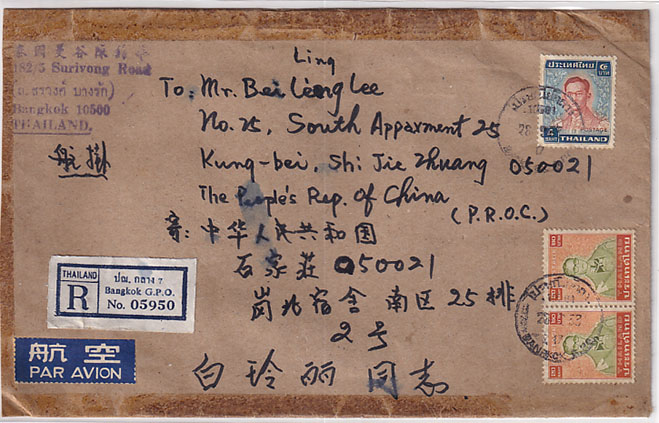 泰國曼谷陳
182/5 Surivong Road
(ถ. สุรวงศ์ บางรัก)
Bangkok 10500
THAILAND.
航掛
Ling
To: Mr. Bei Leong Lee
No. 25, South Apparxment 25
Kung-bei, Shi Jie Zhuang 050021
The People's Rep. of China
(P.R.O.C.)
寄: 中华人民共和国
石家莊 050021
岗北宿舍 南区 25 排
2 号
白玲丽 同志
THAILAND
R
ปณ. กลาง 7
Bangkok G.P.O.
No. 05950
航空
PAR AVION
ประเทศไทย
บาท
POSTAGE
THAILAND
ประเทศไทย
THAILAND
ประเทศไทย
THAILAND